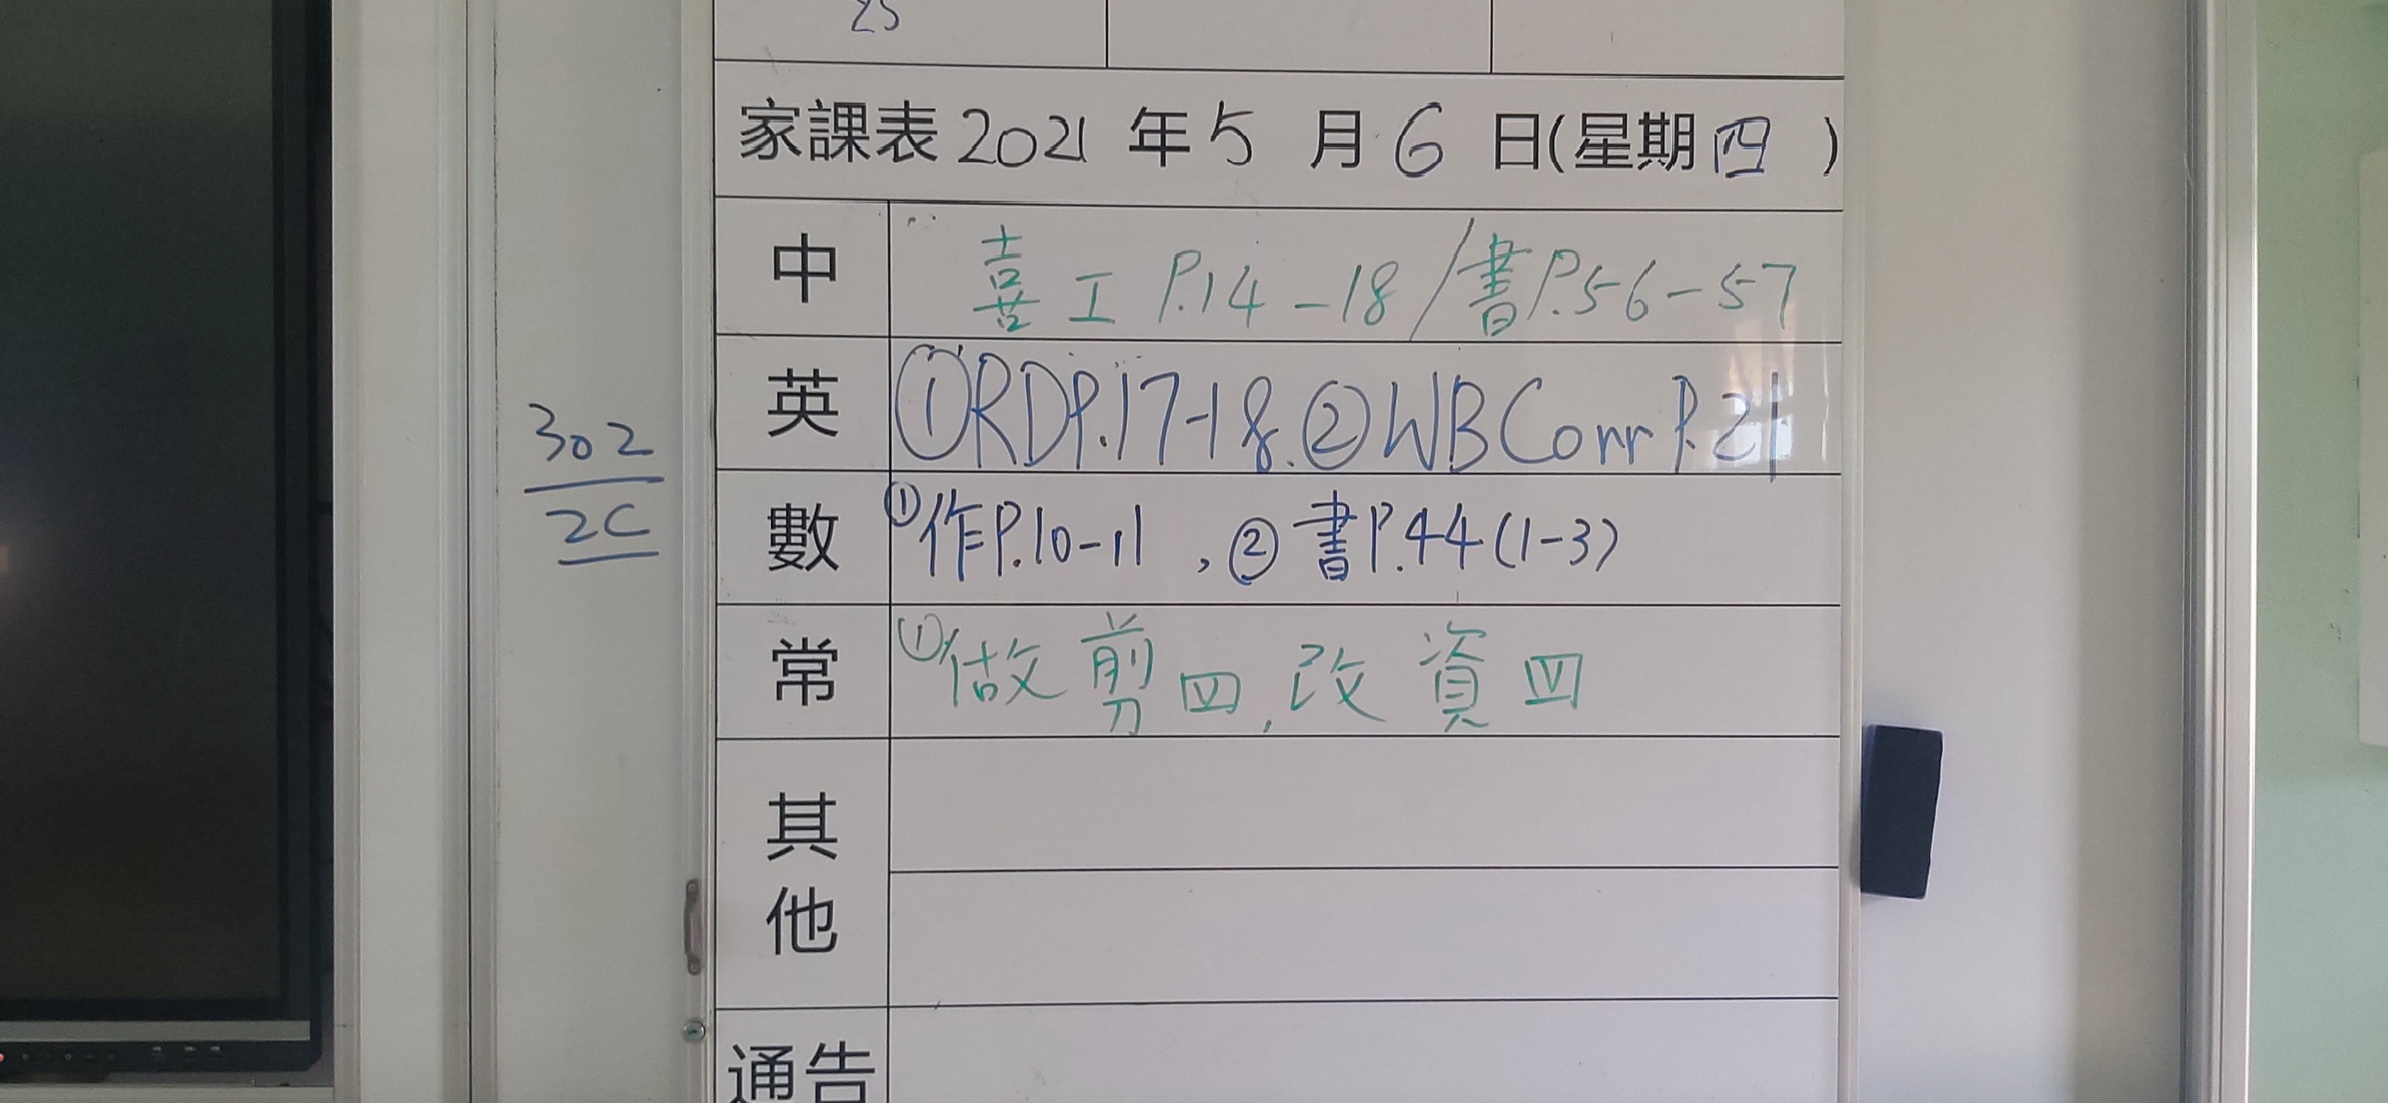 25
家課表 2021 年 5 月 6 日(星期四 )
中 喜工 P.14-18/書P.56-57
英 ①RDP.17-18.②WB Corr P.21
302
2C
數 ①作P.10-11 ,②書P.44(1-3)
常 ①做剪四,改資四
其他
通告